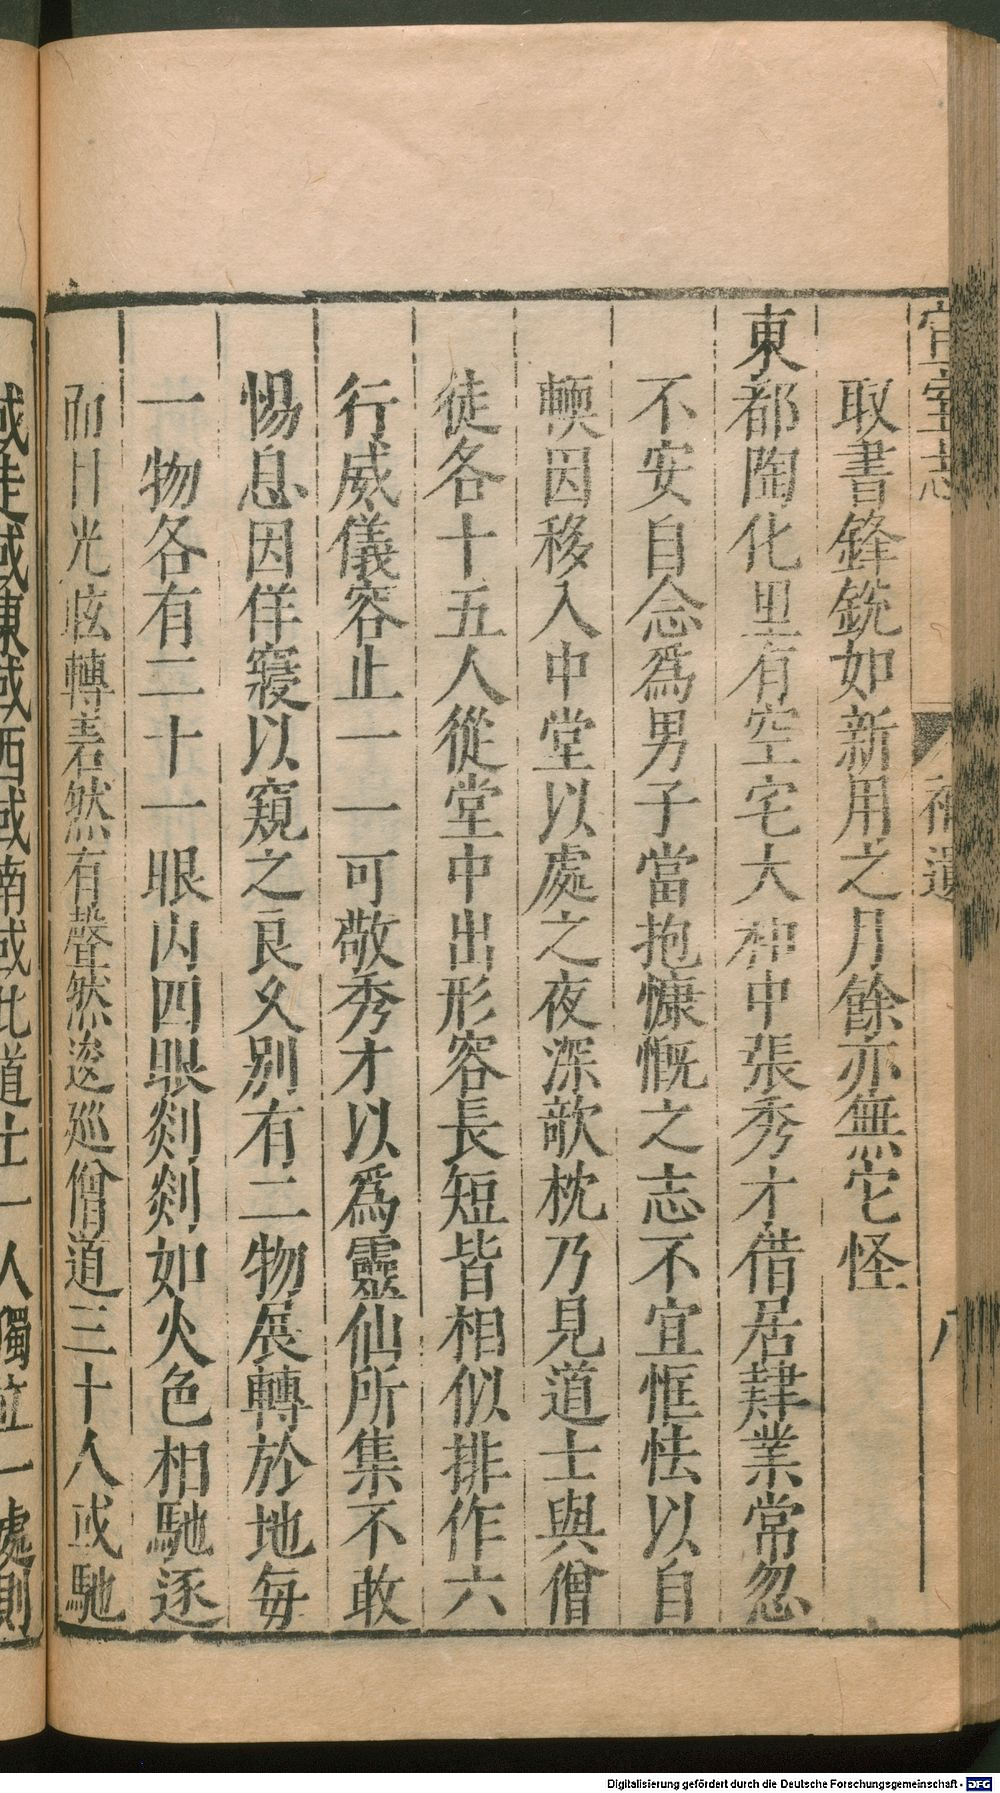 宣室志 補遺 八
取書鋒銳如新用之月餘亦無它怪
東都陶化里有空宅大和中張秀才借居肆業常忽
不安自念爲男子當抱慷慨之志不宜恇怯以自
輭因移入中堂以處之夜深欹枕乃見道士與僧
徒各十五人從堂中出形容長短皆相似排作六
行威儀容止一一可敬秀才以爲靈仙所集不敢
惕息因佯寢以窺之良久別有二物展轉於地每
一物各有二十一眼內四眼剡剡如火色相馳逐
而目光眩轉砉然有聲然逡巡僧道三十人或馳
或走或東或西或南或北道士一人獨立一處則
Digitalisierung gefördert durch die Deutsche Forschungsgemeinschaft - DFG